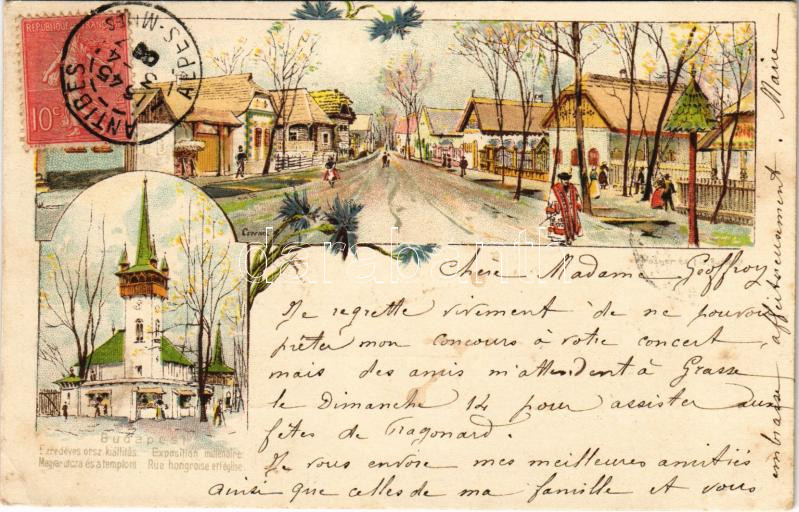 REPUBLIQUE FRANÇAISE
10c
ANTIBES
ALPES-MMES
Czerna
darabanth
Budapest
Ezredéves orsz. kiállitás. Exposition millénaire.
Magyar utcza és a templom. Rue hongroise et l'église.
Chère Madame Geoffroy
Je regrette vivement de ne pouvoir
prêter mon concours à votre concert,
mais des amis m'attendent à Grasse
le Dimanche 14 pour assister aux
fêtes de Fragonard.
Je vous envoie mes meilleures amitiés
ainsi que celles de ma famille et vous
embrasse affectueusement. Marie